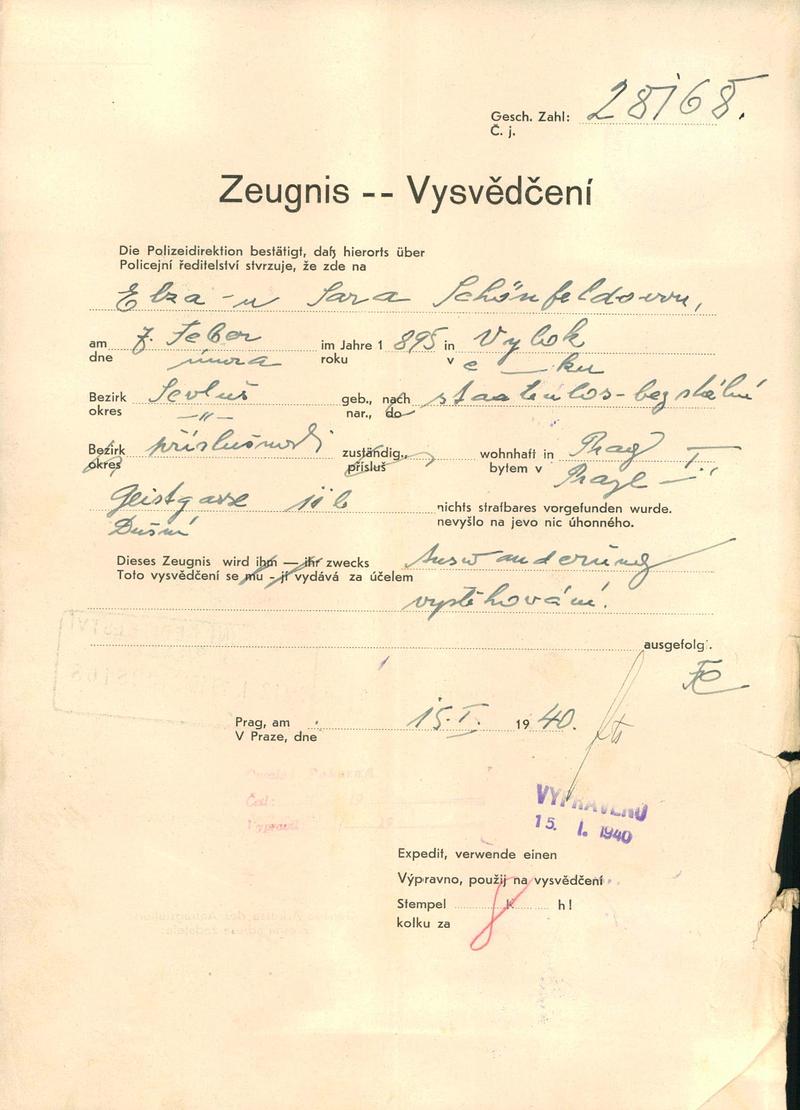 Gesch. Zahl: 28168.
Č. j.
Zeugnis -- Vysvědčení
Die Polizeidirektion bestätigt, daß hierorts über
Policejní ředitelství stvrzuje, že zde na
Elza-u Sara Schönfeldovou,
am 7. Feber im Jahre 1 895 in Vylok
dne února roku v e ku
Bezirk Sevluš geb., nach staatenlos - bez státní
okres -"- nar., do
Bezirk příslušnosti zuständig., wohnhaft in Prag I
okres přísluš bytem v Praze -"
Geistgasse 11b nichts strafbares vorgefunden wurde.
Dušní nevyšlo na jevo nic úhonného.
Dieses Zeugnis wird ihm — ihr zwecks Auswanderung
Toto vysvědčení se mu - jí vydává za účelem
vystěhování.
ausgefolgt.
Prag, am 15. I. 1940.
V Praze, dne
VYPRAVENO
15. I. 1940
Expedit, verwende einen
Výpravno, použij na vysvědčení
Stempel 8 K h!
kolku za